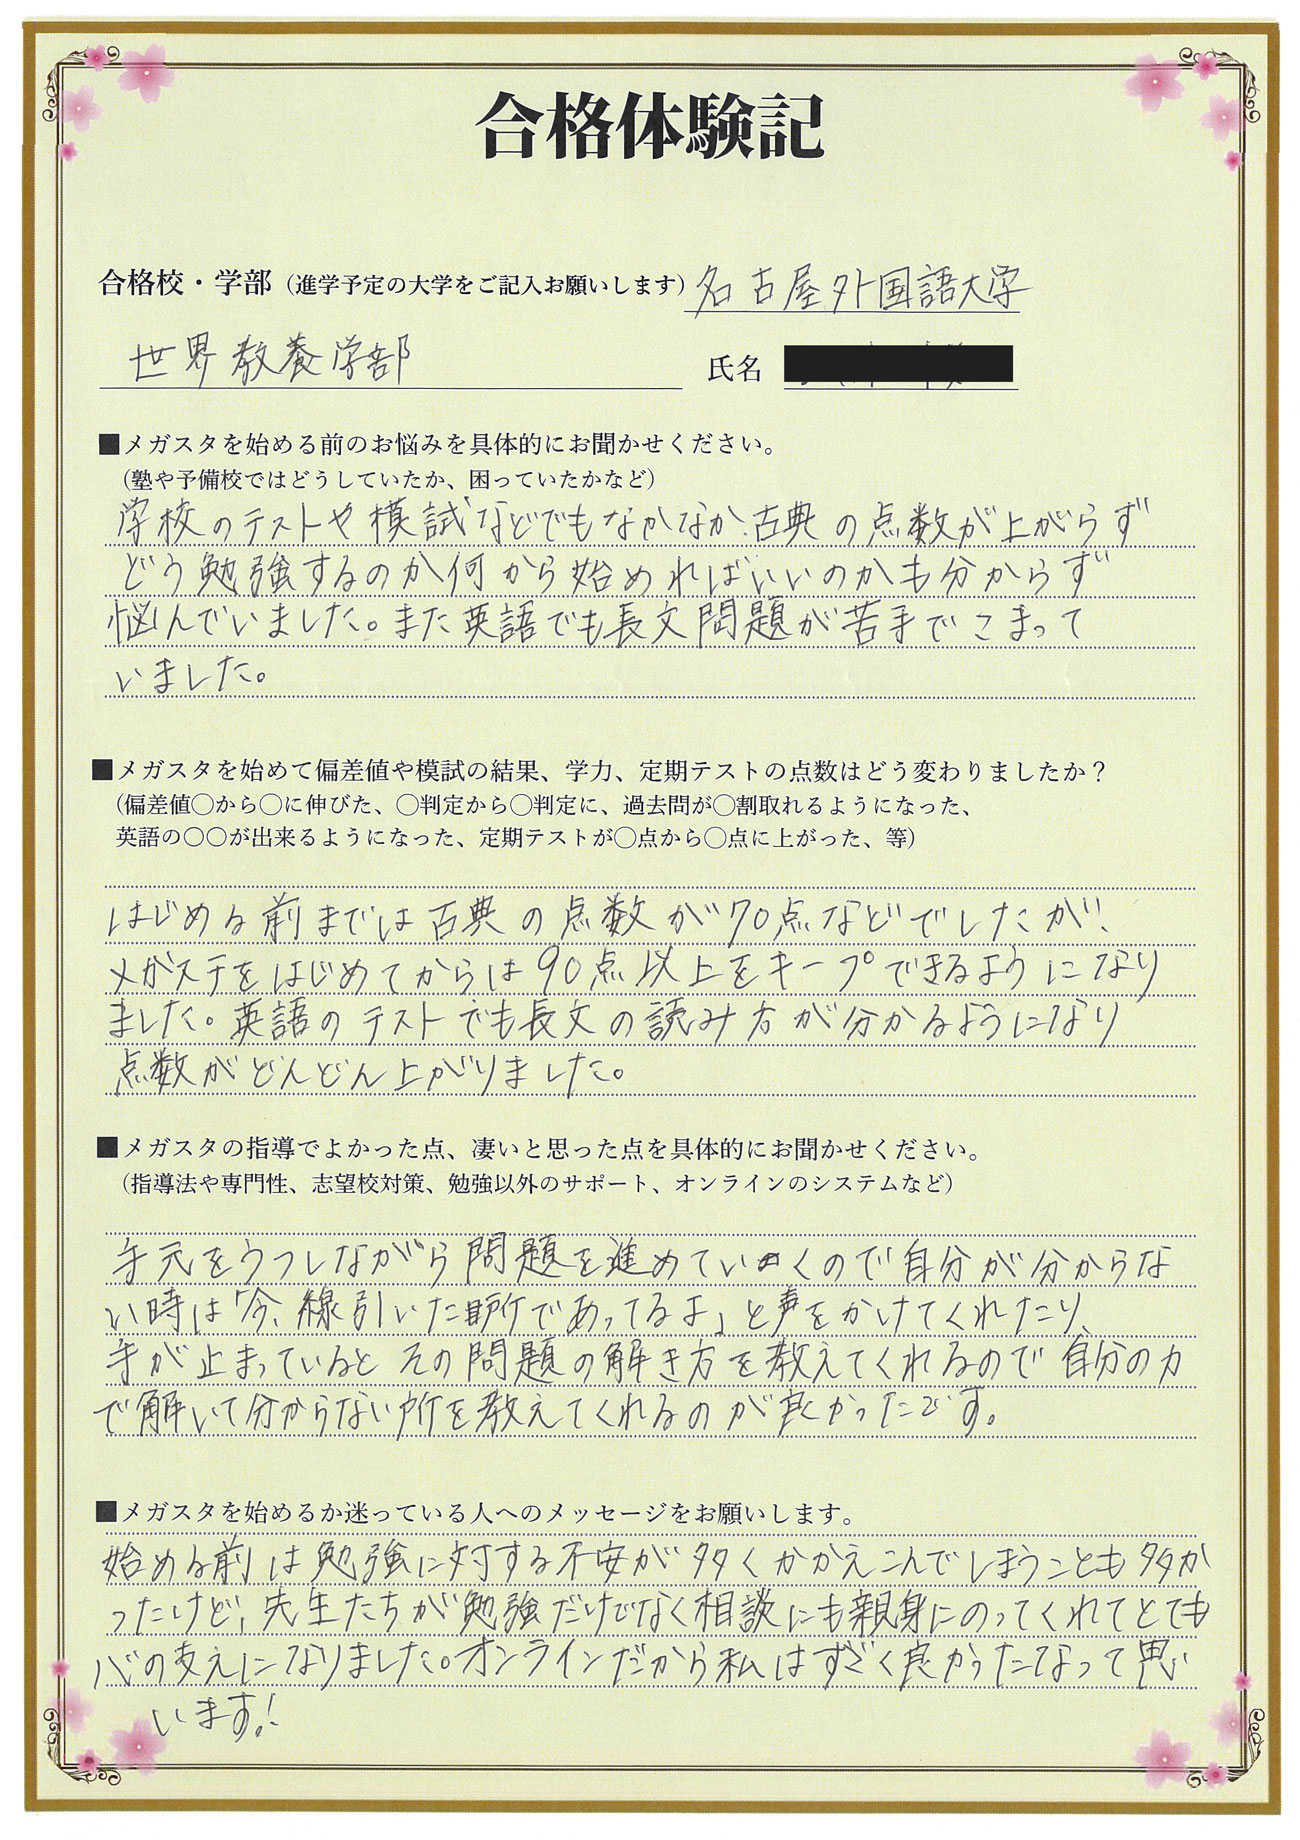 合格体験記
合格校・学部（進学予定の大学をご記入お願いします）名古屋外国語大学
世界教養学部 氏名
■メガスタを始める前のお悩みを具体的にお聞かせください。
（塾や予備校ではどうしていたか、困っていたかなど）
学校のテストや模試などでもなかなか古典の点数が上がらず
どう勉強するのか何から始めればいいのかも分からず
悩んでいました。また英語でも長文問題が苦手でこまって
いました。
■メガスタを始めて偏差値や模試の結果、学力、定期テストの点数はどう変わりましたか？
（偏差値〇から〇に伸びた、〇判定から〇判定に、過去問が〇割取れるようになった、
英語の〇〇が出来るようになった、定期テストが〇点から〇点に上がった、等）
はじめる前までは古典の点数が70点などでしたが、
メガステをはじめてからは90点以上をキープできるようになり
ました。英語のテストでも長文の読み方が分かるようになり
点数がどんどん上がりました。
■メガスタの指導でよかった点、凄いと思った点を具体的にお聞かせください。
（指導法や専門性、志望校対策、勉強以外のサポート、オンラインのシステムなど）
手元をうつしながら問題を進めていくので自分が分からな
い時は「今、線引いた所であってるよ」と声をかけてくれたり、
手が止まっているとその問題の解き方を教えてくれるので自分の力
で解いて分からない所を教えてくれるのが良かったです。
■メガスタを始めるか迷っている人へのメッセージをお願いします。
始める前は勉強に対する不安が多くかかえこんでしまうことも多か
ったけど、先生たちが勉強だけでなく相談にも親身にのってくれてとても
心の支えになりました。オンラインだから私はすごく良かったなって思い
います!